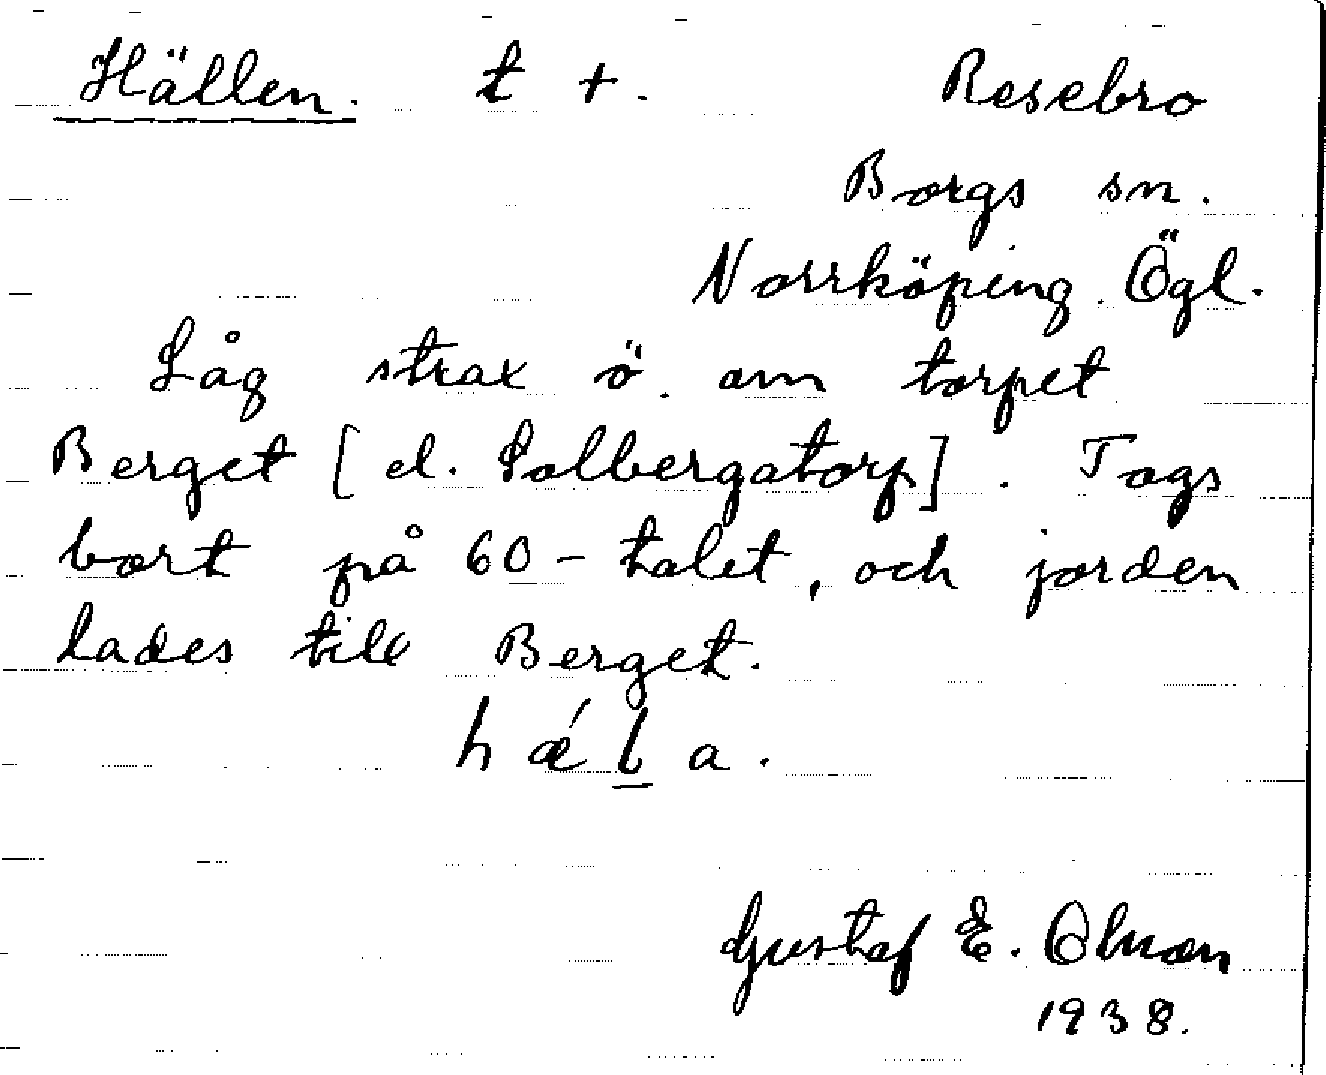 Hällen. t +. Resebro
Borgs sn.
Norrköping. Ögl.
Låg strax ö. om torpet
Berget [el. Solbergatorp]. Togs
bort på 60-talet, och jorden
lades till Berget.
h ǽ l a.
Gustaf E.
1938.